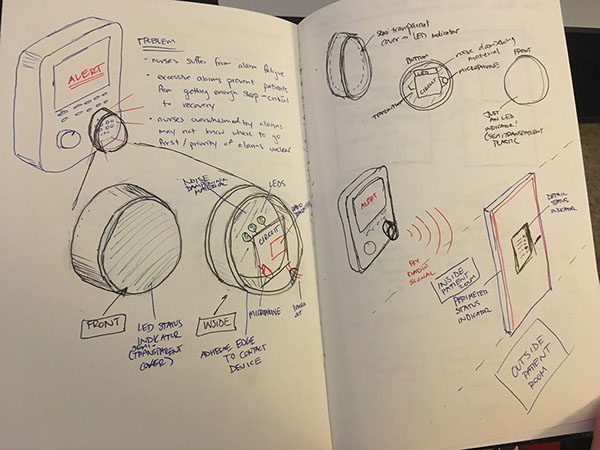 ALERT
PROBLEM
• nurses suffer from alarm fatigue
• excessive alarms prevent patients
from getting enough sleep - critical
to recovery
• nurses overwhelmed by alarms
may not know where to go
first / priority of alarms unclear
NOISE
DAMPENING
MATERIAL
LEDS
CIRCUIT
RADIO
MICROPHONE
FRONT
INSIDE
LED STATUS
INDICATOR
SEMI-
(TRANSPARENT
COVER)
ADHESIVE EDGE
TO CONTACT
DEVICE
semi transparent
cover → LED indicator
BOTTOM
noise dampening
material
MICROPHONES
LED
CIRCUIT
FRONT
JUST
AN LED
INDICATOR
(SEMI-TRANSPARENT
PLASTIC
ALERT
BY
RADIO
SIGNAL
INSIDE
PATIENT
ROOM
PERIMETER
STATUS
INDICATOR
DETAIL
STATUS
INDICATOR
OUTSIDE
PATIENT
ROOM